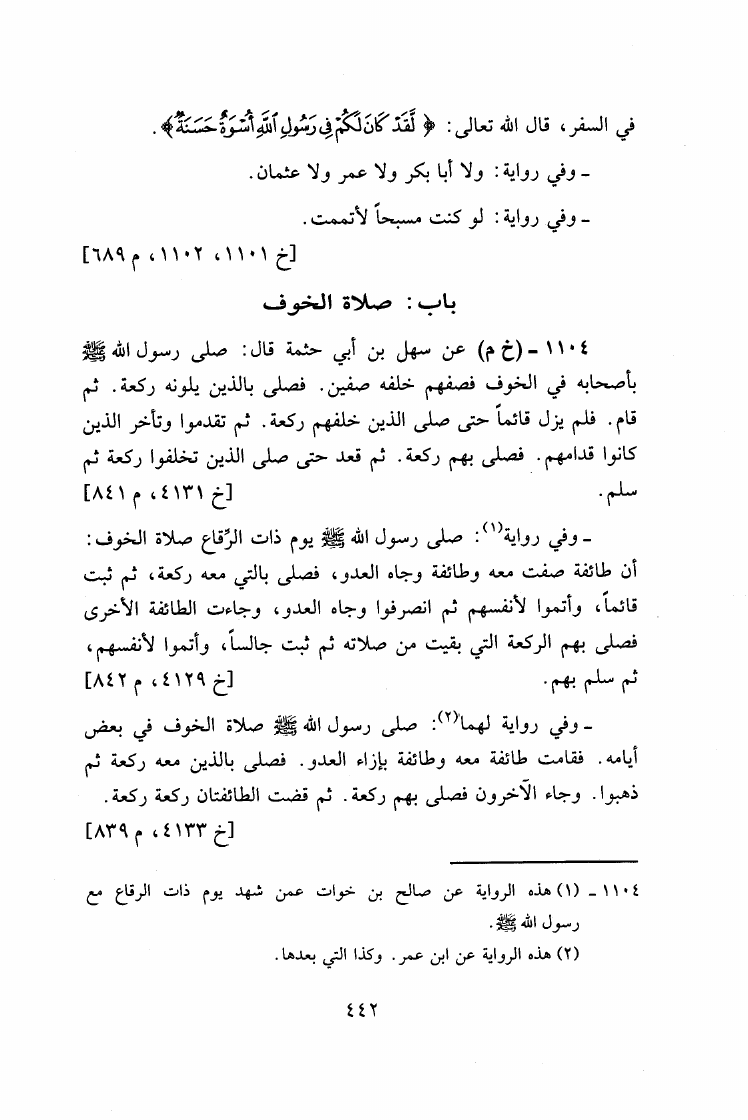 في السفر، قال الله تعالى: ﴿ لَّقَدْ كَانَ لَكُمْ فِي رَسُولِ ٱللَّهِ أُسْوَةٌ حَسَنَةٌ﴾.
ـ وفي رواية: ولا أبا بكر ولا عمر ولا عثمان.
ـ وفي رواية: لو كنت مسبحاً لأتممت.
[خ ١١٠١، ١١٠٢، م ٦٨٩]
باب: صلاة الخوف
١١٠٤ ـ (خ م) عن سهل بن أبي حثمة قال: صلى رسول الله ﷺ
بأصحابه في الخوف فصفهم خلفه صفين. فصلى بالذين يلونه ركعة. ثم
قام. فلم يزل قائماً حتى صلى الذين خلفهم ركعة. ثم تقدموا وتأخر الذين
كانوا قدامهم. فصلى بهم ركعة. ثم قعد حتى صلى الذين تخلفوا ركعة ثم
سلم. [خ ٤١٣١، م ٨٤١]
ـ وفي رواية(١): صلى رسول الله ﷺ يوم ذات الرِّقاع صلاة الخوف:
أن طائفة صفت معه وطائفة وجاه العدو، فصلى بالتي معه ركعة، ثم ثبت
قائماً، وأتموا لأنفسهم ثم انصرفوا وجاه العدو، وجاءت الطائفة الأخرى
فصلى بهم الركعة التي بقيت من صلاته ثم ثبت جالساً، وأتموا لأنفسهم،
ثم سلم بهم. [خ ٤١٢٩، م ٨٤٢]
ـ وفي رواية لهما(٢): صلى رسول الله ﷺ صلاة الخوف في بعض
أيامه. فقامت طائفة معه وطائفة بإزاء العدو. فصلى بالذين معه ركعة ثم
ذهبوا. وجاء الآخرون فصلى بهم ركعة. ثم قضت الطائفتان ركعة ركعة.
[خ ٤١٣٣، م ٨٣٩]
١١٠٤ ـ (١) هذه الرواية عن صالح بن خوات عمن شهد يوم ذات الرقاع مع
رسول الله ﷺ.
(٢) هذه الرواية عن ابن عمر. وكذا التي بعدها.
٤٤٢